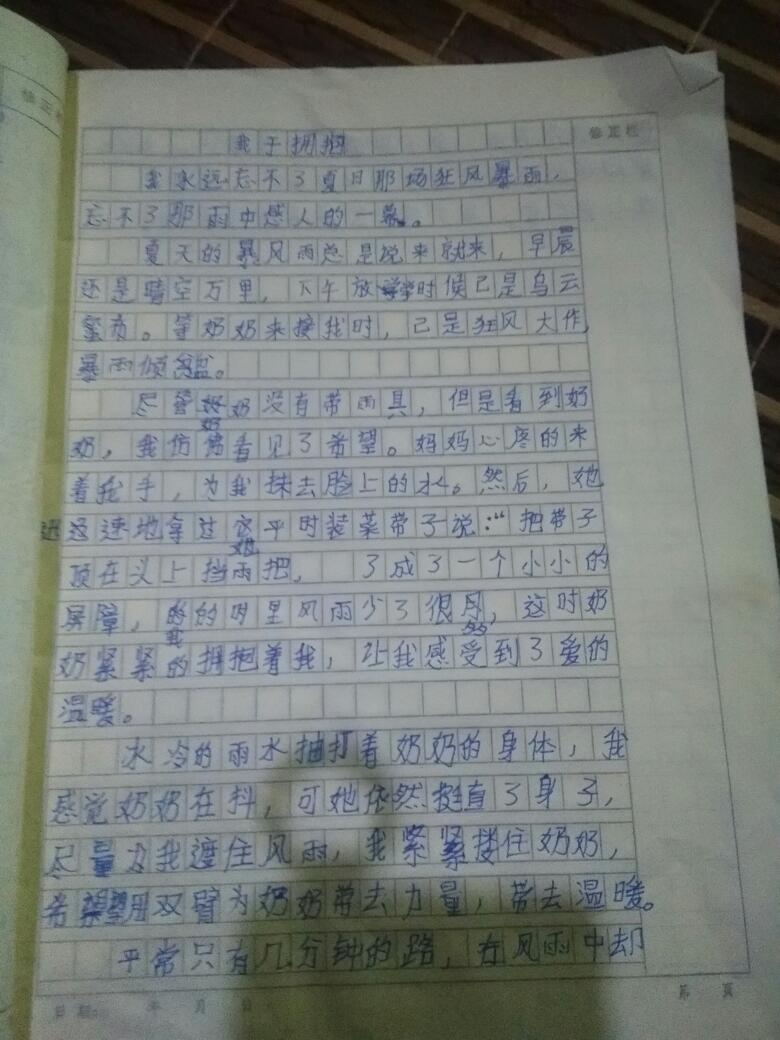 修正栏
我于拥抱
修正栏
我永远忘不了夏日那场狂风暴雨，
忘不了那雨中感人的一幕。
夏天的暴风雨总是说来就来，早晨
还是晴空万里，下午放学时候已是乌云
密布。等奶奶来接我时，已是狂风大作，
暴雨倾盆。
尽管奶奶没有带雨具，但是看到奶
奶，我仿佛看见了希望。妈妈心疼的来
着我手，为我抹去脸上的水。然后，她
迅速地拿过她平时装菜带子说：“把带子
顶在头上挡雨把，了成了一个小小的
屏障，我的时里风雨少了很多，这时奶
奶紧紧的拥抱着我，让我感受到了爱的
温暖。
水冷的雨水抽打着奶奶的身体，我
感觉奶奶在抖，可她依然挺直了身子，
尽量为我遮住风雨，我紧紧搂住奶奶，
希望用双臂为奶奶带去力量，带去温暖。
平常只有几分钟的路，在风雨中却
日期： 年 月 日
第 页